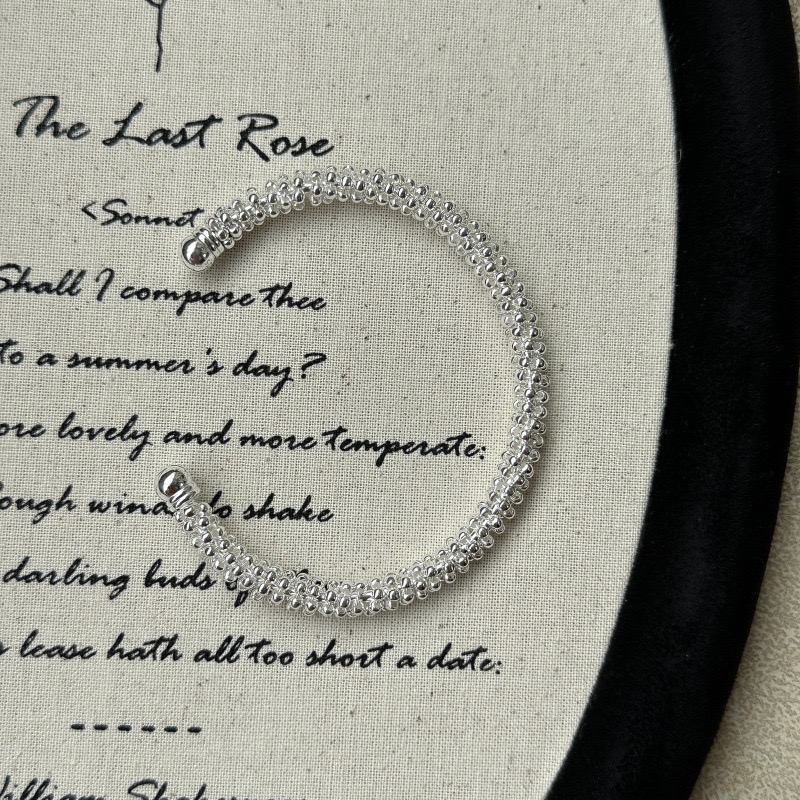 The Last Rose
<Sonnet
Shall I compare thee
to a summer's day?
ore lovely and more temperate:
ough wind do shake
darling buds of
s lease hath all too short a date:
------
William